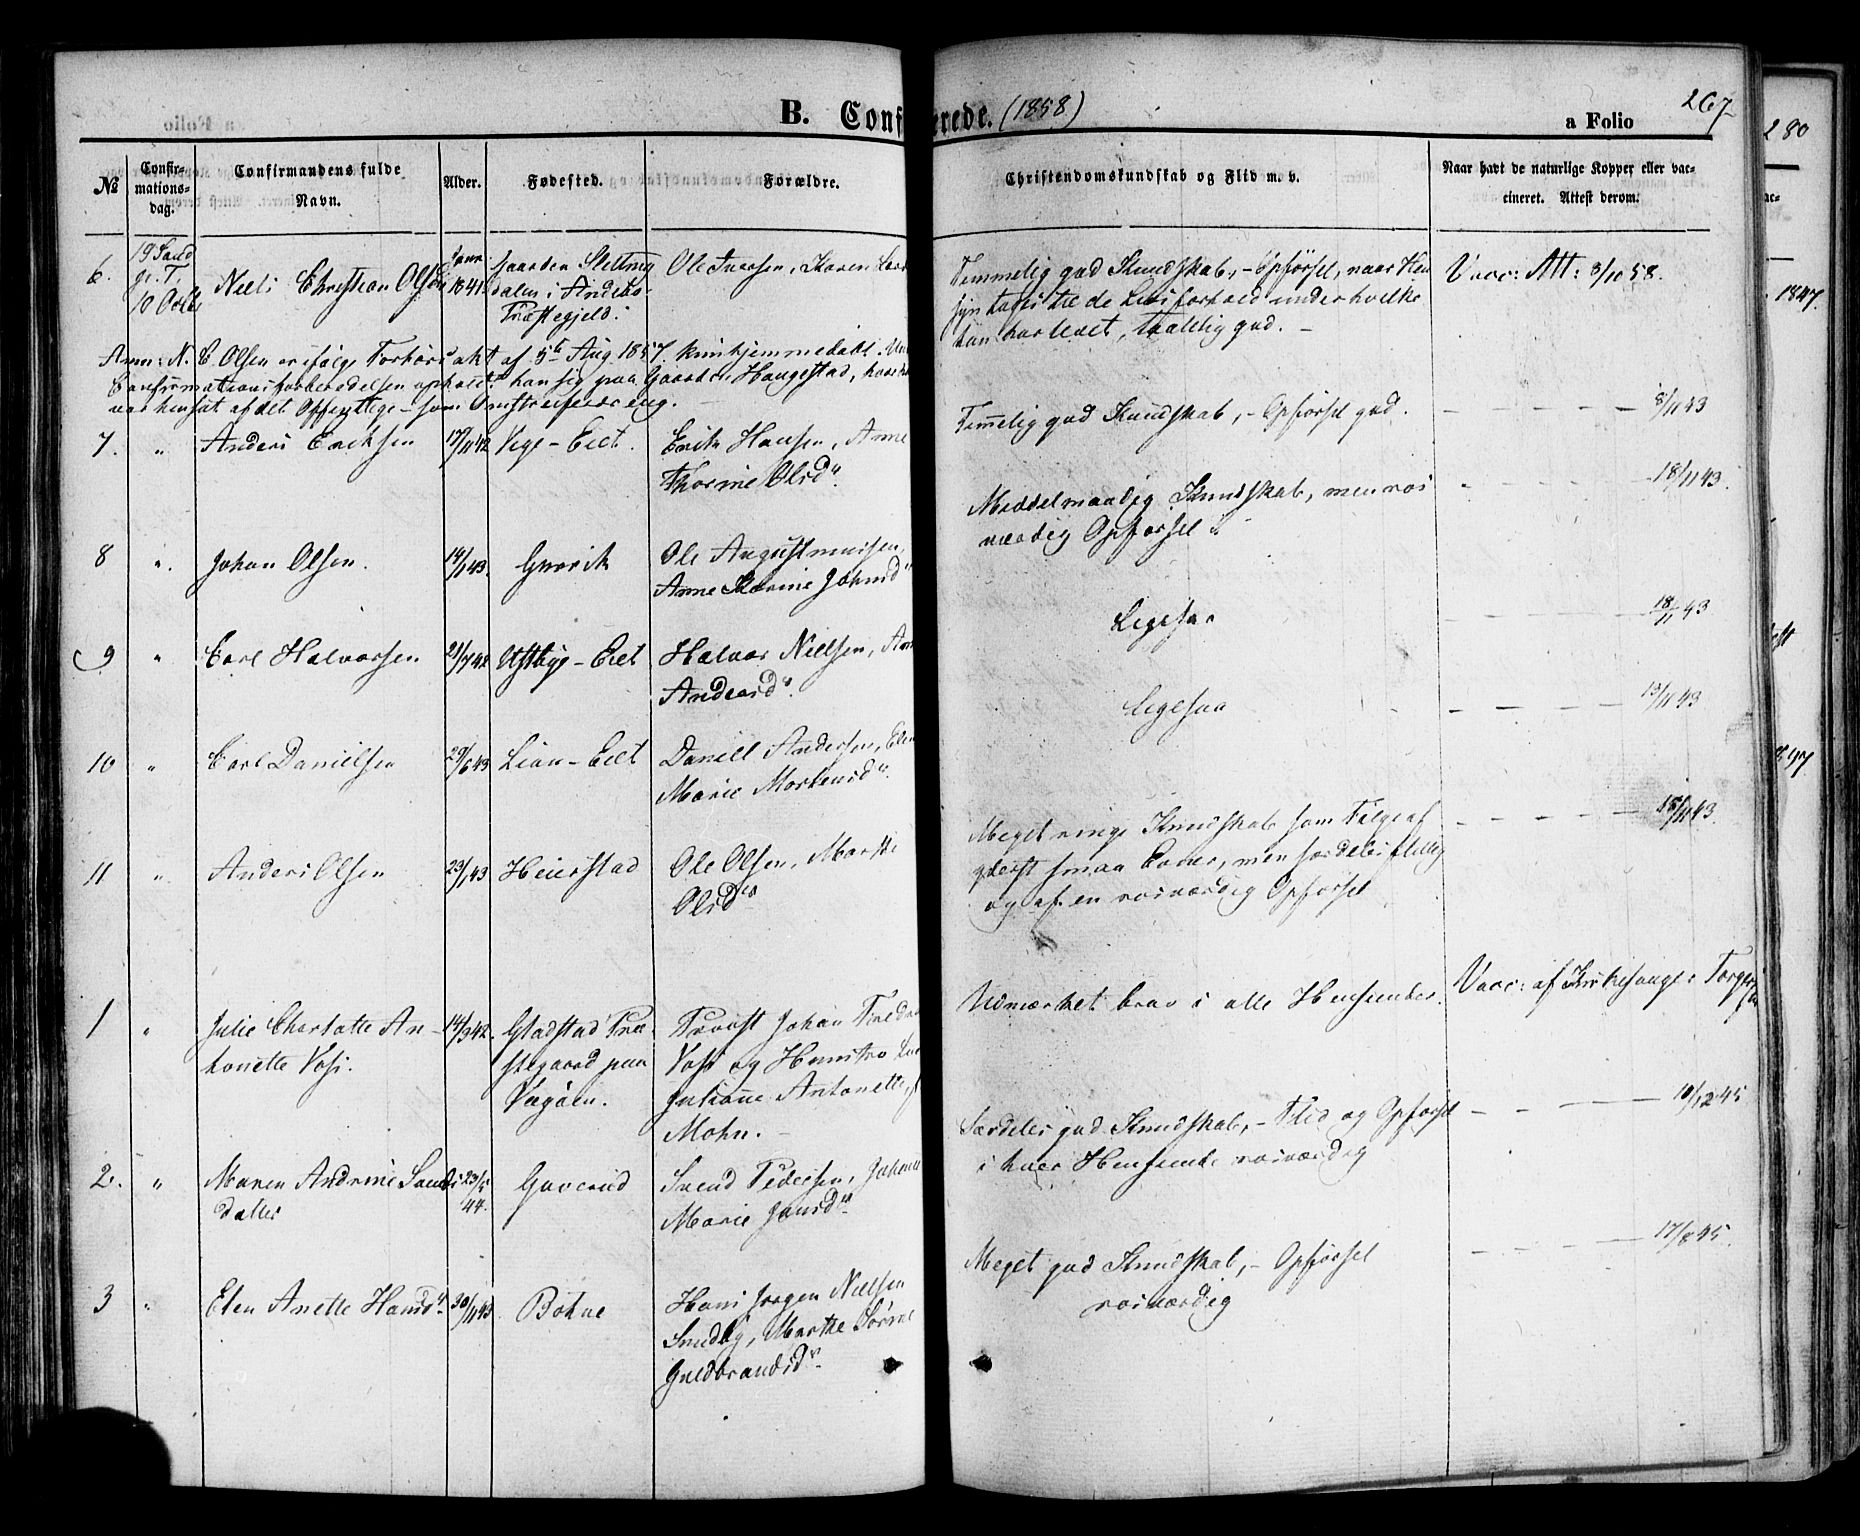 B. Conf
erede. (1858)
a Folio
267
280
№
Confir-
mations-
dag.
Confirmandens fulde
Navn.
Alder.
Fødested.
Forældre.
Christendomskundskab og Flid m. v.
Naar havt de naturlige Kopper eller vac-
cineret. Attest derom.
6.
19 Sønd
gr. T.
10 Octbr
Niels Christian Olsen
Janr
1841
Gaarden Sletting
dalen i Andebo
Præstegjeld.
Ole Iversen, Karen
Temmelig god Kundskab, - Opførsel, naar Hen
syn tages til de Livsforhold under hvilke
han har levet, taalelig god. -
Vacc: Att: 8/10 58.
1847.
Anm: N. C Olsen er ifølge Forhørsakt af 5te Aug 1857
Confirmationsforberedelsen opholdt han sig paa Gaarden Haugestad, hvor han
var hensat af det Offentlige - som Omstreiferdreng.
7.
"
Anders Eriksen
17/11 42
Vege - Eiet.
Erik Hansen, Anne
Thorine Olsdr.
Temmelig god Kundskab, - Opførsel god.
8/11 43
8
"
Johan Olsen.
14/1 43.
Gnarik
Ole Augustinusen,
Anne Karine Johnsd
Middelmaadig Kundskab, men ros
værdig Opførsel
18/11 43.
9
"
Carl Halvorsen
21/7 42
Østbye - Eiet
Halvor Nielsen, An
Andersdr.
Ligesaa
18/11 43
10
"
Carl Daniellsen
29/6 43
Lian - Eiet
Daniell Andersen, Elen
Marie Mortensdr.
Ligesaa
13/11 43
11
"
Anders Olsen
23/1 43
Heierstad
Ole Olsen, Marthe
Olsdr
Meget ringe Kundskab som Følge af
yderst smaa Evner, men særdeles flittig
og af en rosværdig Opførsel
18/11 43.
1
"
Julie Charlotte An-
tonette Voss.
14/3 42.
Gladstad Præ-
stegaard paa
Vegøen.
Provst Johan Fredr
Voss og Hustro
Juliane Antonette, f
Mohn. -
Udmærket brav i alle Henseender.
Vacc: af Kirkesanger Torger
2.
"
Maren Andrine Svends
datter
23/5
44.
Gaverud
Svend Pedersen, Johanne
Marie Jansdr
Særdeles god Kundskab, - Flid og Opførsel
i hver Henseende rosværdig
10/12 45
3
"
Elen Anette Hansdr.
30/11 43
Bakke
Hans Jørgen Nielsen
Smeby, Marthe Sørine
Guldbrandsdr.
Meget god Kundskab, - Opførsel
rosværdig
17/8 45.